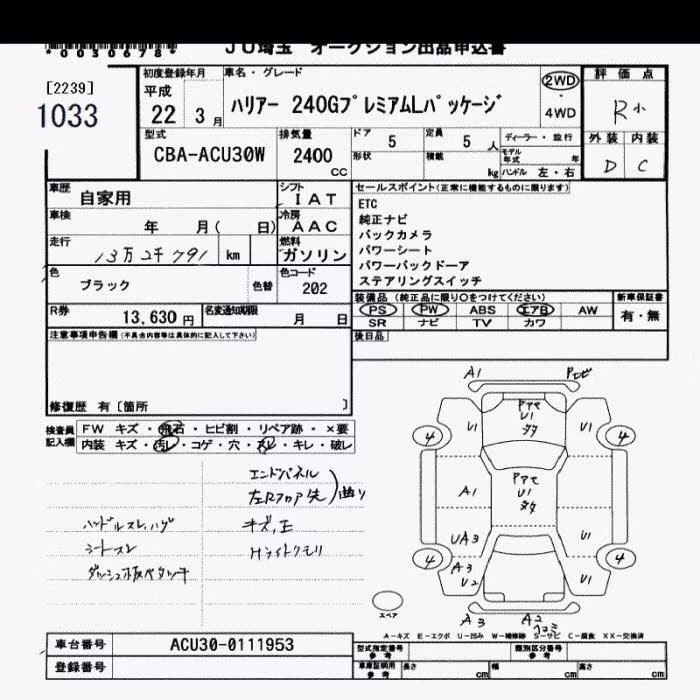 *0030678*
JU埼玉 オークション出品申込書
[2239]
1033
初度登録年月
平成
22 3月
車名・グレード
ハリアー 240GプレミアムLパッケージ
2WD
・
4WD
評価点
R小
型式
CBA-ACU30W
排気量
2400
CC
ドア 5
形状
定員 5 人
積載 kg
ディーラー・並行
モデル年式 年
ハンドル 左・右
外装 内装
D C
車歴
自家用
シフト
IAT
車検
年 月( 日)
冷房
AAC
走行
13万2千791 km
燃料
ガソリン
色
ブラック
色替
色コード
202
R券
13,630 円
名変通知期限
月 日
セールスポイント(正常に機能するものに限ります)
ETC
純正ナビ
バックカメラ
パワーシート
パワーバックドーア
ステアリングスイッチ
装備品 (純正品に限り○をつけてください)
新車保証書
PS PW ABS エアB AW
SR ナビ TV カワ
有・無
後日品
注意事項申告欄(不具合内容等は具体的に記入して下さい)
修復歴 有〔箇所 〕
検査員記入欄
FW キズ・飛石・ヒビ割・リペア跡・×要
内装 キズ・汚レ・コゲ・穴・スレ・キレ・破レ
エンドパネル
左Rフロア先
曲り
ハンドルスレ,ハゲ
シートスレ
ダッシュ板ベタツキ
キズ,凹
Hライトクモリ
A1
U1
4
U1
U1
4
A1
U1
UA3
U1
4
A3
U2
U1
4
A3
A2
ヘコミ
スペア
A-キズ E-エクボ U-凹み W-補修跡 S-サビ C-腐食 XX-交換済
車台番号 ACU30-0111953
登録番号
型式指定番号
参考
類別区分番号
参考
車庫証明用
参考
長さ cm
幅 cm
高さ cm